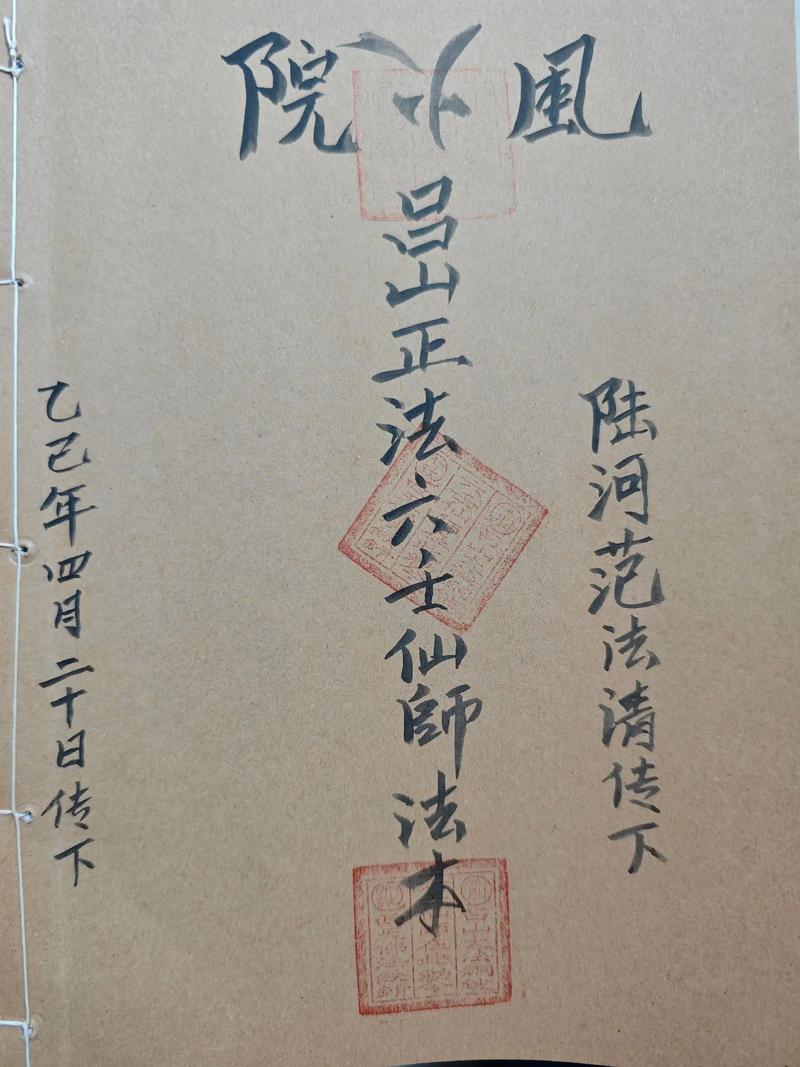 風火院
陆河范法清传下
吕山正法六壬仙師法本
乙巳年四月二十日传下